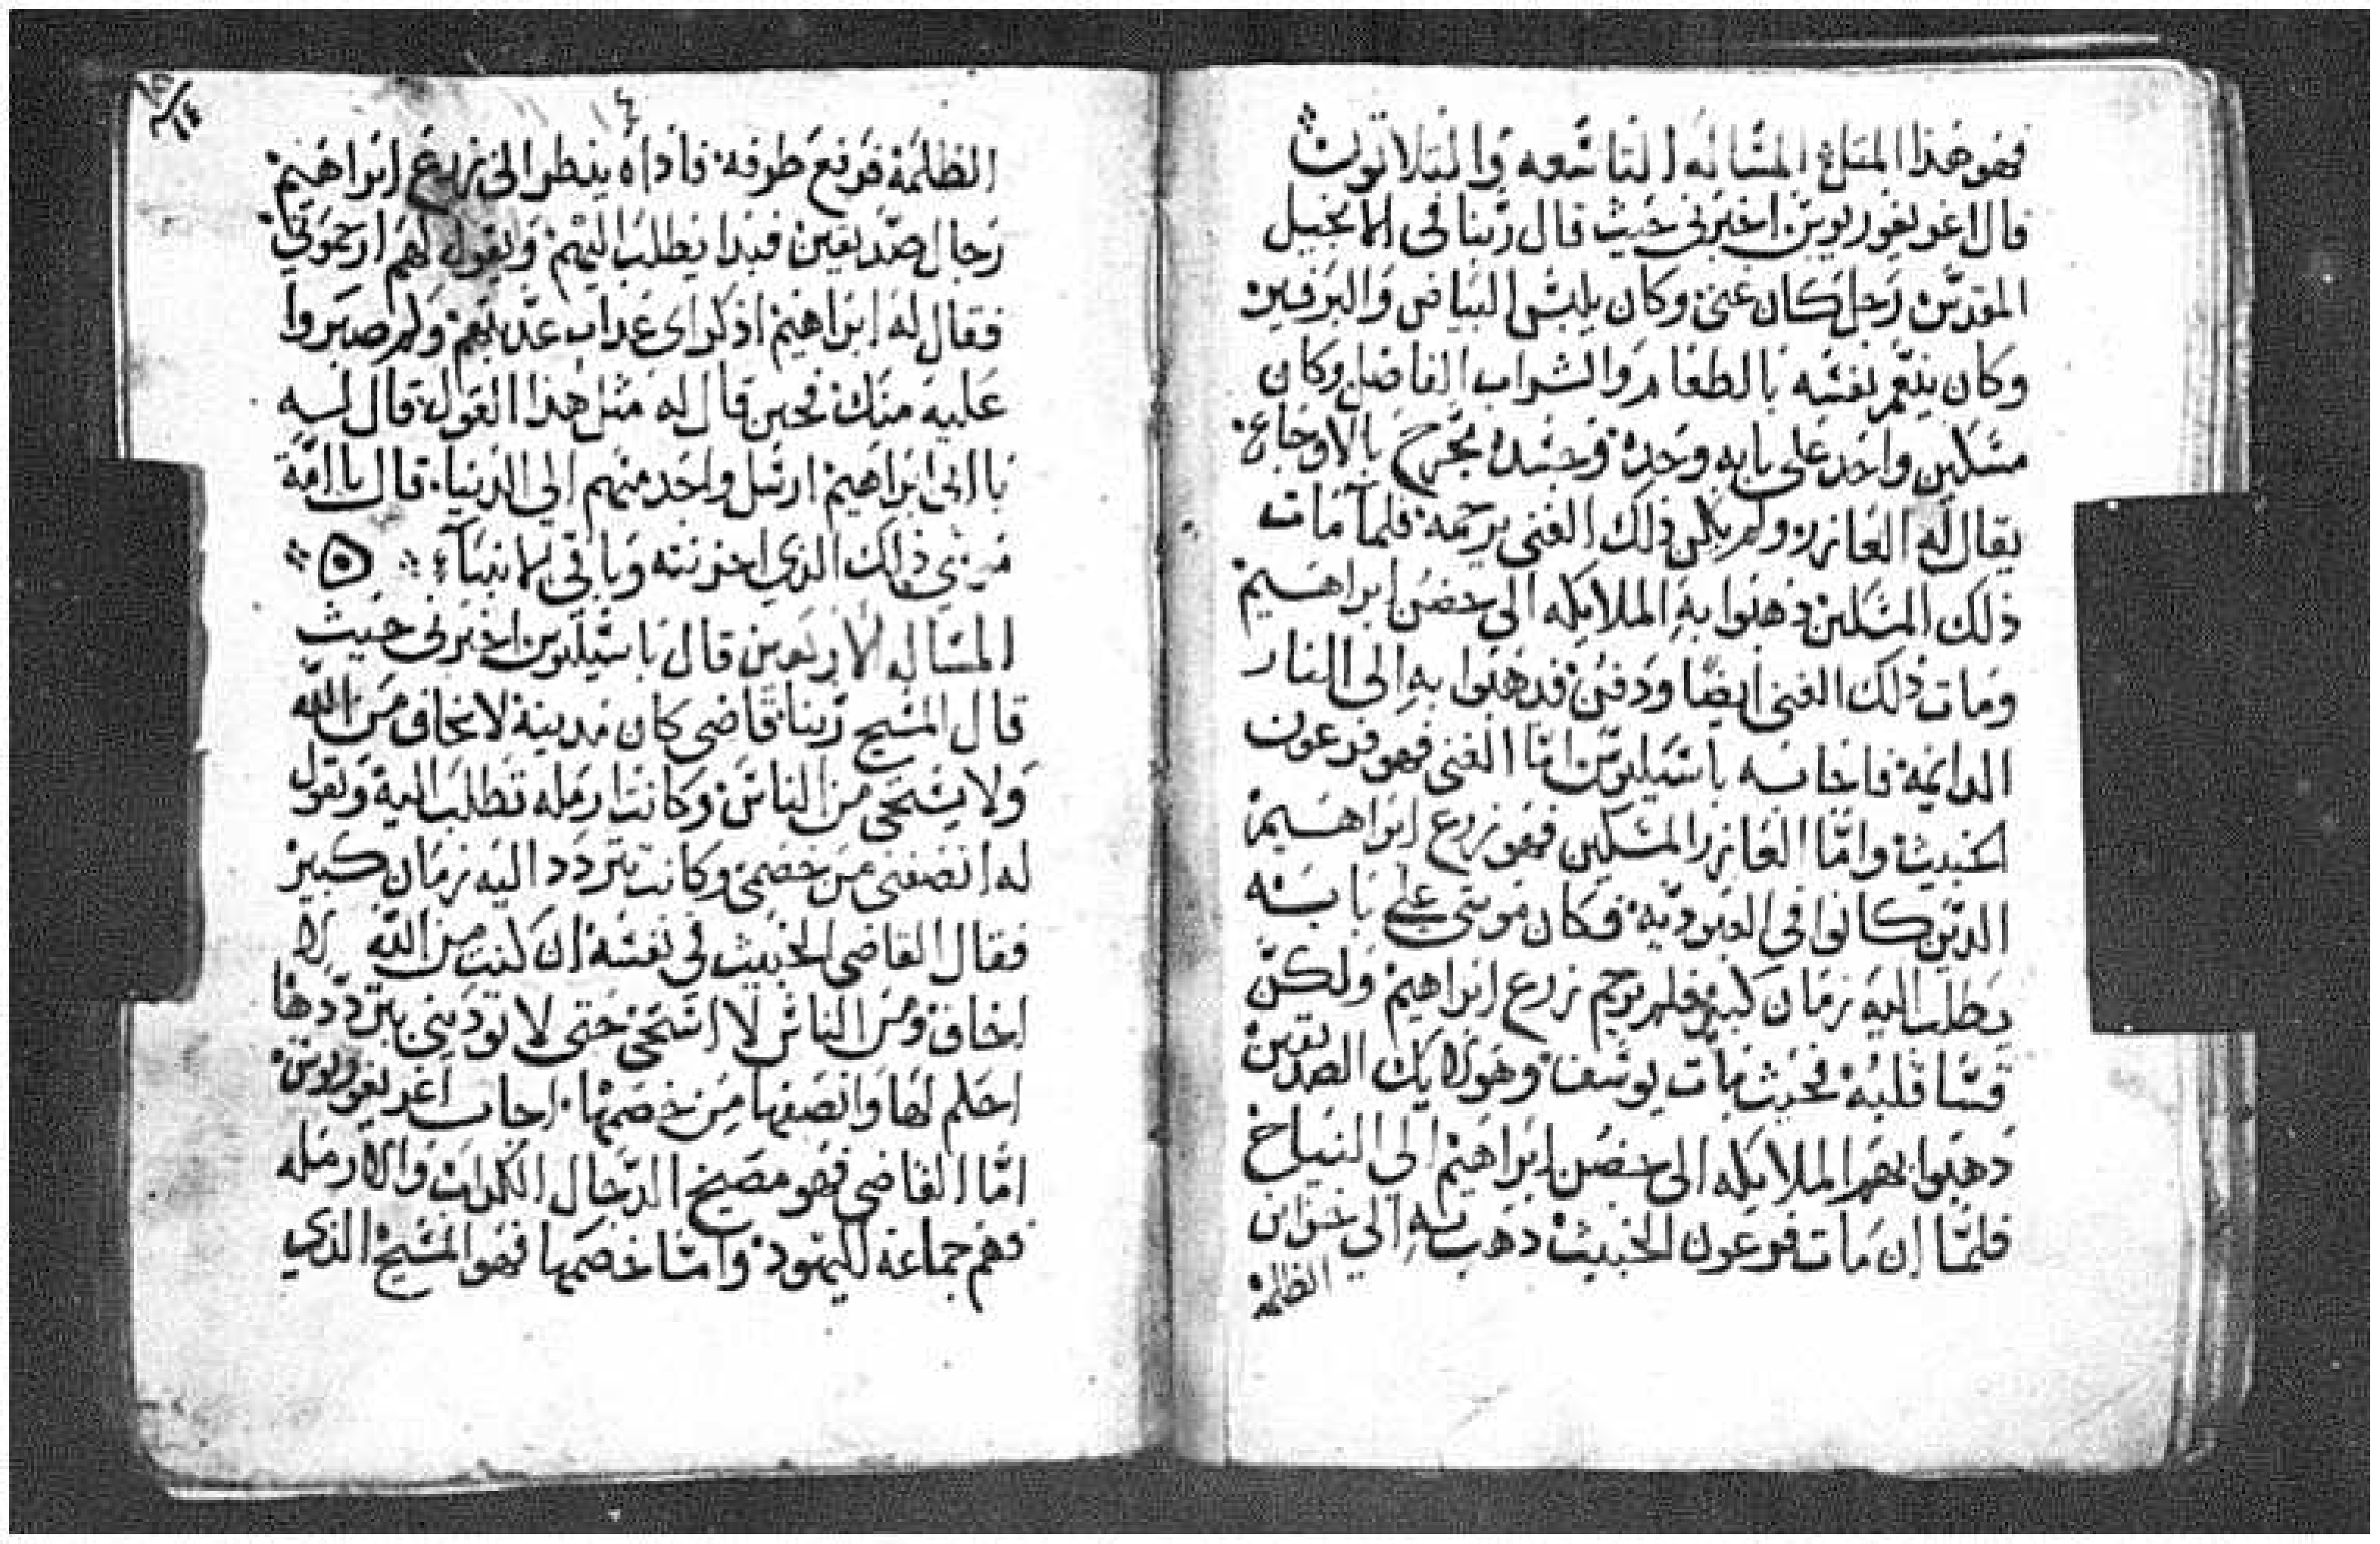 فهو هذا المثل المسّاله التاسّعه والثلاثون
قال اغريغوريوس اخبرنى حيث قال ربّنا فى الانجيل
المقدّس رجل كان غنى وكان يلبسّ البياض والبرفير
وكان ينعّم نفسّه بالطعام والشراب الفاضل وكان
مسّكين واحد على بابه وحده وجسّده بجرح بالاوجاع
يقال له العازر ولم يكن ذلك الغنى يرحمه فلما مات
ذلك المسّكين ذهبوا به الملايكه الى حضن ابراهيم
ومات ذلك الغنى ايضًا ودفن فذهبوا به الى النار
الدايمة فاجابه باسّيليوس امّا الغنى فهو فرعون
الخبيث وامّا العازر المسّكين فهو زرع ابراهيم
الذين كانوا فى العبوديّه فكان موسّى على بابه
يطلب اليه زمان كبير فلم يرحم زرع ابراهيم ولكن
قسّا قلبه فحيث مات يوسّف وهولايك الصديقين
ذهبوا بهم الملايكه الى حضن ابراهيم الى النياح
فلمّا ان مات فرعون الخبيث ذهب به الى خزاين
الظلمة
١٤
الظلمة فرفع طرفه فاداه ينظر الى زرع ابراهيم
رجال صدّيقين فبدا يطلب اليهم ويقول لهم ارحمونى
فقال له ابراهيم اذكر اى عذاب عذّبتهم ولم صبروا
عليه منك فحين قال له مثل هذا القول قال له
يا ابى ابراهيم ارسّل واحد منهم الى الدنيا قال يا
ذلك الذي وباقى الانبيا
المسّاله الاربعين قال باسّيليوس اخبرنى حيث
قال المسّيح ربّنا قاضى كان مدينة لا يخاف من الله
ولا يسّتحى من الناسّ وكانت ارمله تطلب اليه وتقول
له انصفنى من خصمى وكانت تتردد اليه زمان كبير
فقال القاضى الخبيث فى نفسّه ان كنت من الله لا
اخاف ومن الناسّ لا اسّتحى حتى لا توديني بتردّدها
احكم لها وانصفها من خصمها اجاب اغريغوريوس
امّا القاضى فهو مصيح الدجال الكداب والارمله
فهم جماعة اليهود وامّا خصمها فهو المسّيح الذي